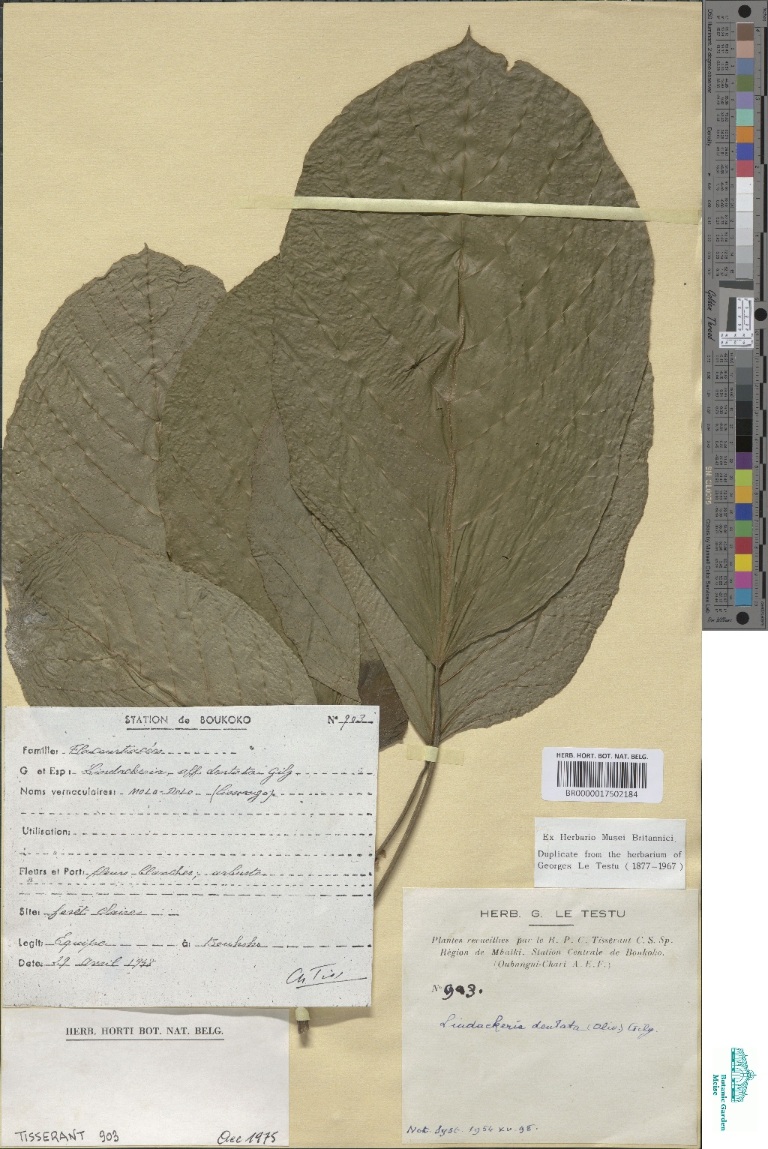 STATION de BOUKOKO
N° 903
Famille:
G et Esp: Lindackeria aff. dentata Gilg
Noms vernaculaires:
Utilisation:
Fleurs et Port: fleurs blanches, arbuste
Site: forêt claire
Legit: Equipe à: Boukoko
Date: 29 Avril 1948
Ch Tiss
HERB. HORTI BOT. NAT. BELG.
TISSERANT 903
Acc 1975
HERB. HORT. BOT. NAT. BELG.
BR0000017502184
Ex Herbario Musei Britannici
Duplicate from the herbarium of
Georges Le Testu (1877-1967)
HERB. G. LE TESTU
Plantes recueillies par le R. P. C. Tisserant C. S. Sp.
Région de Mbaïki. Station Centrale de Boukoko.
(Oubangui-Chari A. E. F.)
N° 903.
Lindackeria dentata (Oliv.) Gilg.
Not. Syst. 1954 XV. 98.
Golden Thread
Botanic Garden
Meise